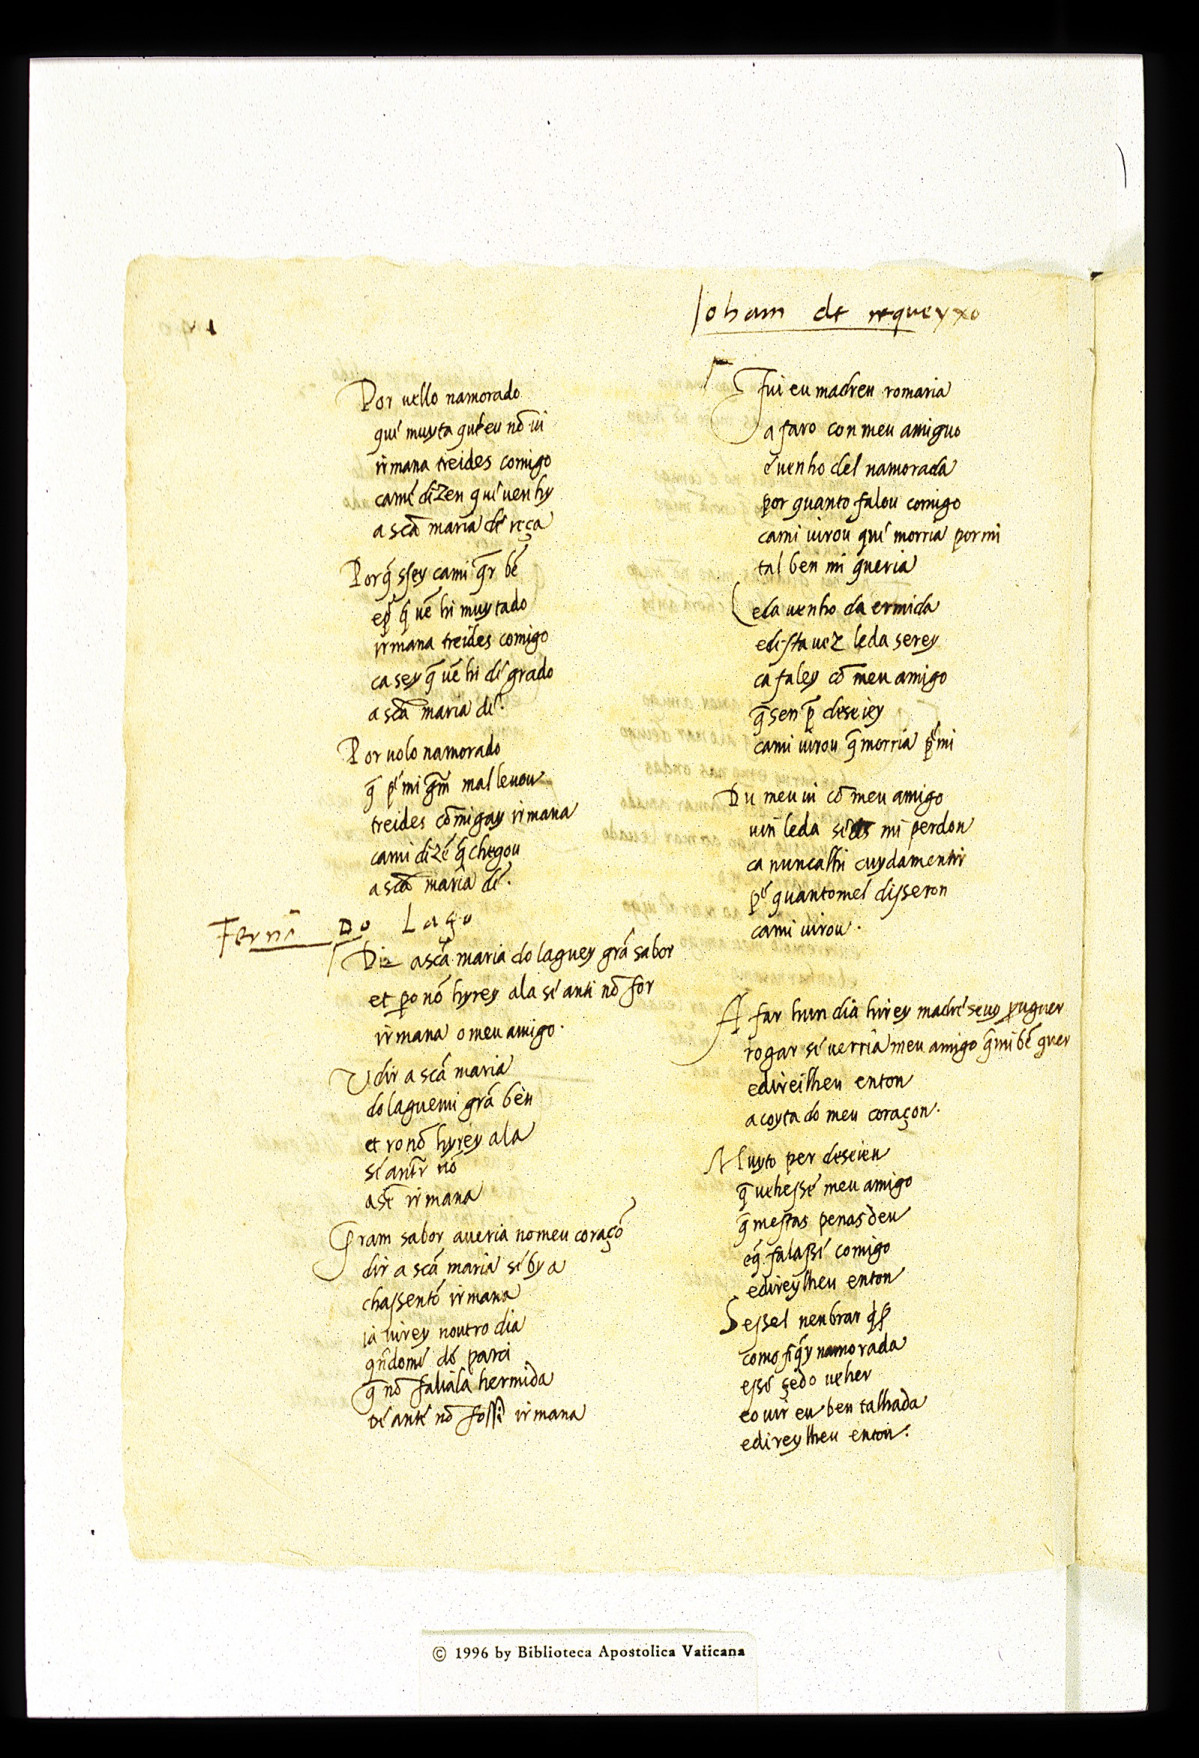 Por uello namorado
que muyta gu̾eu nō ui
irmana treides comigo
camē dizen que uen hy
a scā maria de reça
Porq̄ ssey cami q̄r bē
ep̄ q̄ uē hi muytado
irmana treides comigo
ca sey q̄ uē hi de grado
a scā maria de.
Por uolo namorado
q̄ p̄ mi grā mal leuou
treides cōmigay irmana
cami dizē q̄ chegou
a scā maria de.
Fernā Do Lago
Dir a scā maria do laguey grā sabor
et p̱o nō hyrey ala se anti nō for
irmana o meu amigo.
Udir a scā maria
do laguemi grā ben
et ro nō hyrey ala
se antr nō
irmana
Gram sabor aueria no meu coraçō
dir a scā maria se hy a
chassentō irmana
ia iurey noutro dia
qn̄dome de parti
q̄ nō faliala hermida
se ante nō fosse irmana
Ioham de requeyxo
Fui eu madreu romaria
a faro con meu amiguo
e uenho del namorada
por quanto falou comigo
cami iurou que morria por mi
tal ben mi queria
Leda uenho da ermida
edesta uez leda serey
ca faley cō meu amigo
q̄ sen p̄ deseiey
cami iurou q̄ morria p̄ mi
Du meu ui cō meu amigo
uin leda se ds mi perdon
ca nuncalhi cuydamentir
p̄ quantomel disseron
cami iurou.
A far hun dia hirey madre seuy prouguer
rogar se uerria meu amigo q̄ mi bē quer
edireilheu enton
a coyta do meu coraçon.
Muyto per deseieu
q̄ uehesse meu amigo
q̄ mestas penas deu
eq̄ falasse comigo
edireylheu enton
Sessel nenbrar q̄ser
como fiq̄y namorada
esse çedo ueher
eo uir eu ben talhada
edireylheu enton.
© 1996 by Biblioteca Apostolica Vaticana